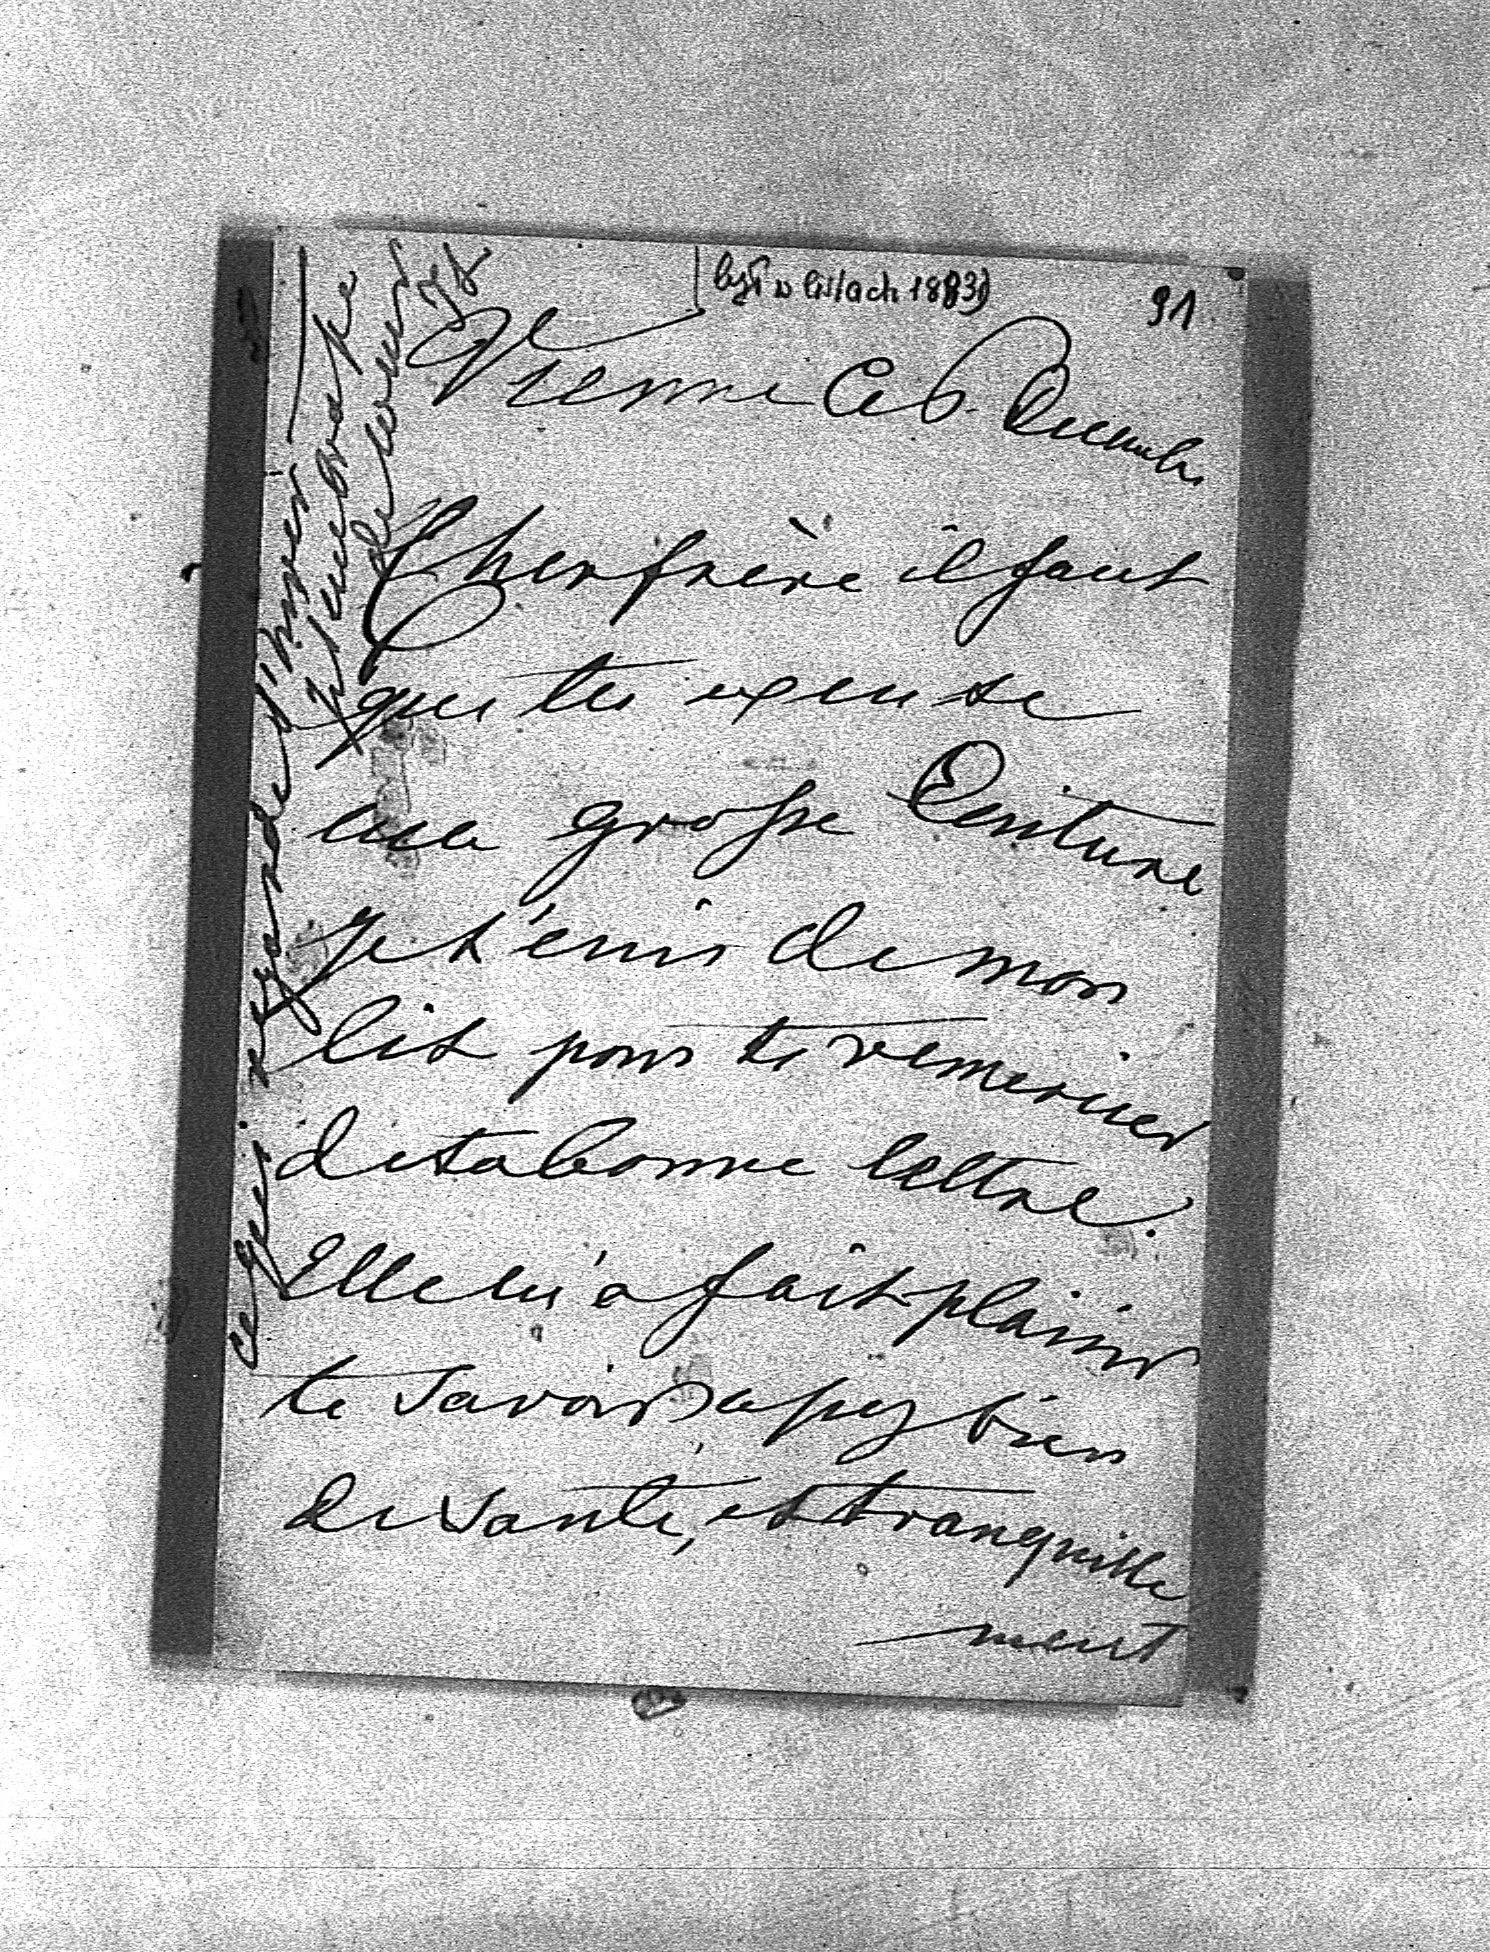 91
Vienne Ce 6. Decembre
Cher frère il faut
que tu excuse
ma grosse Ecriture
Je t'écris de mon
lit pour te remercier
de ta bonne lettre.
Elle m'a fait plaisir
te savoir assez bien
de santé, et tranquille
ment
ce qui regarde l'hiver